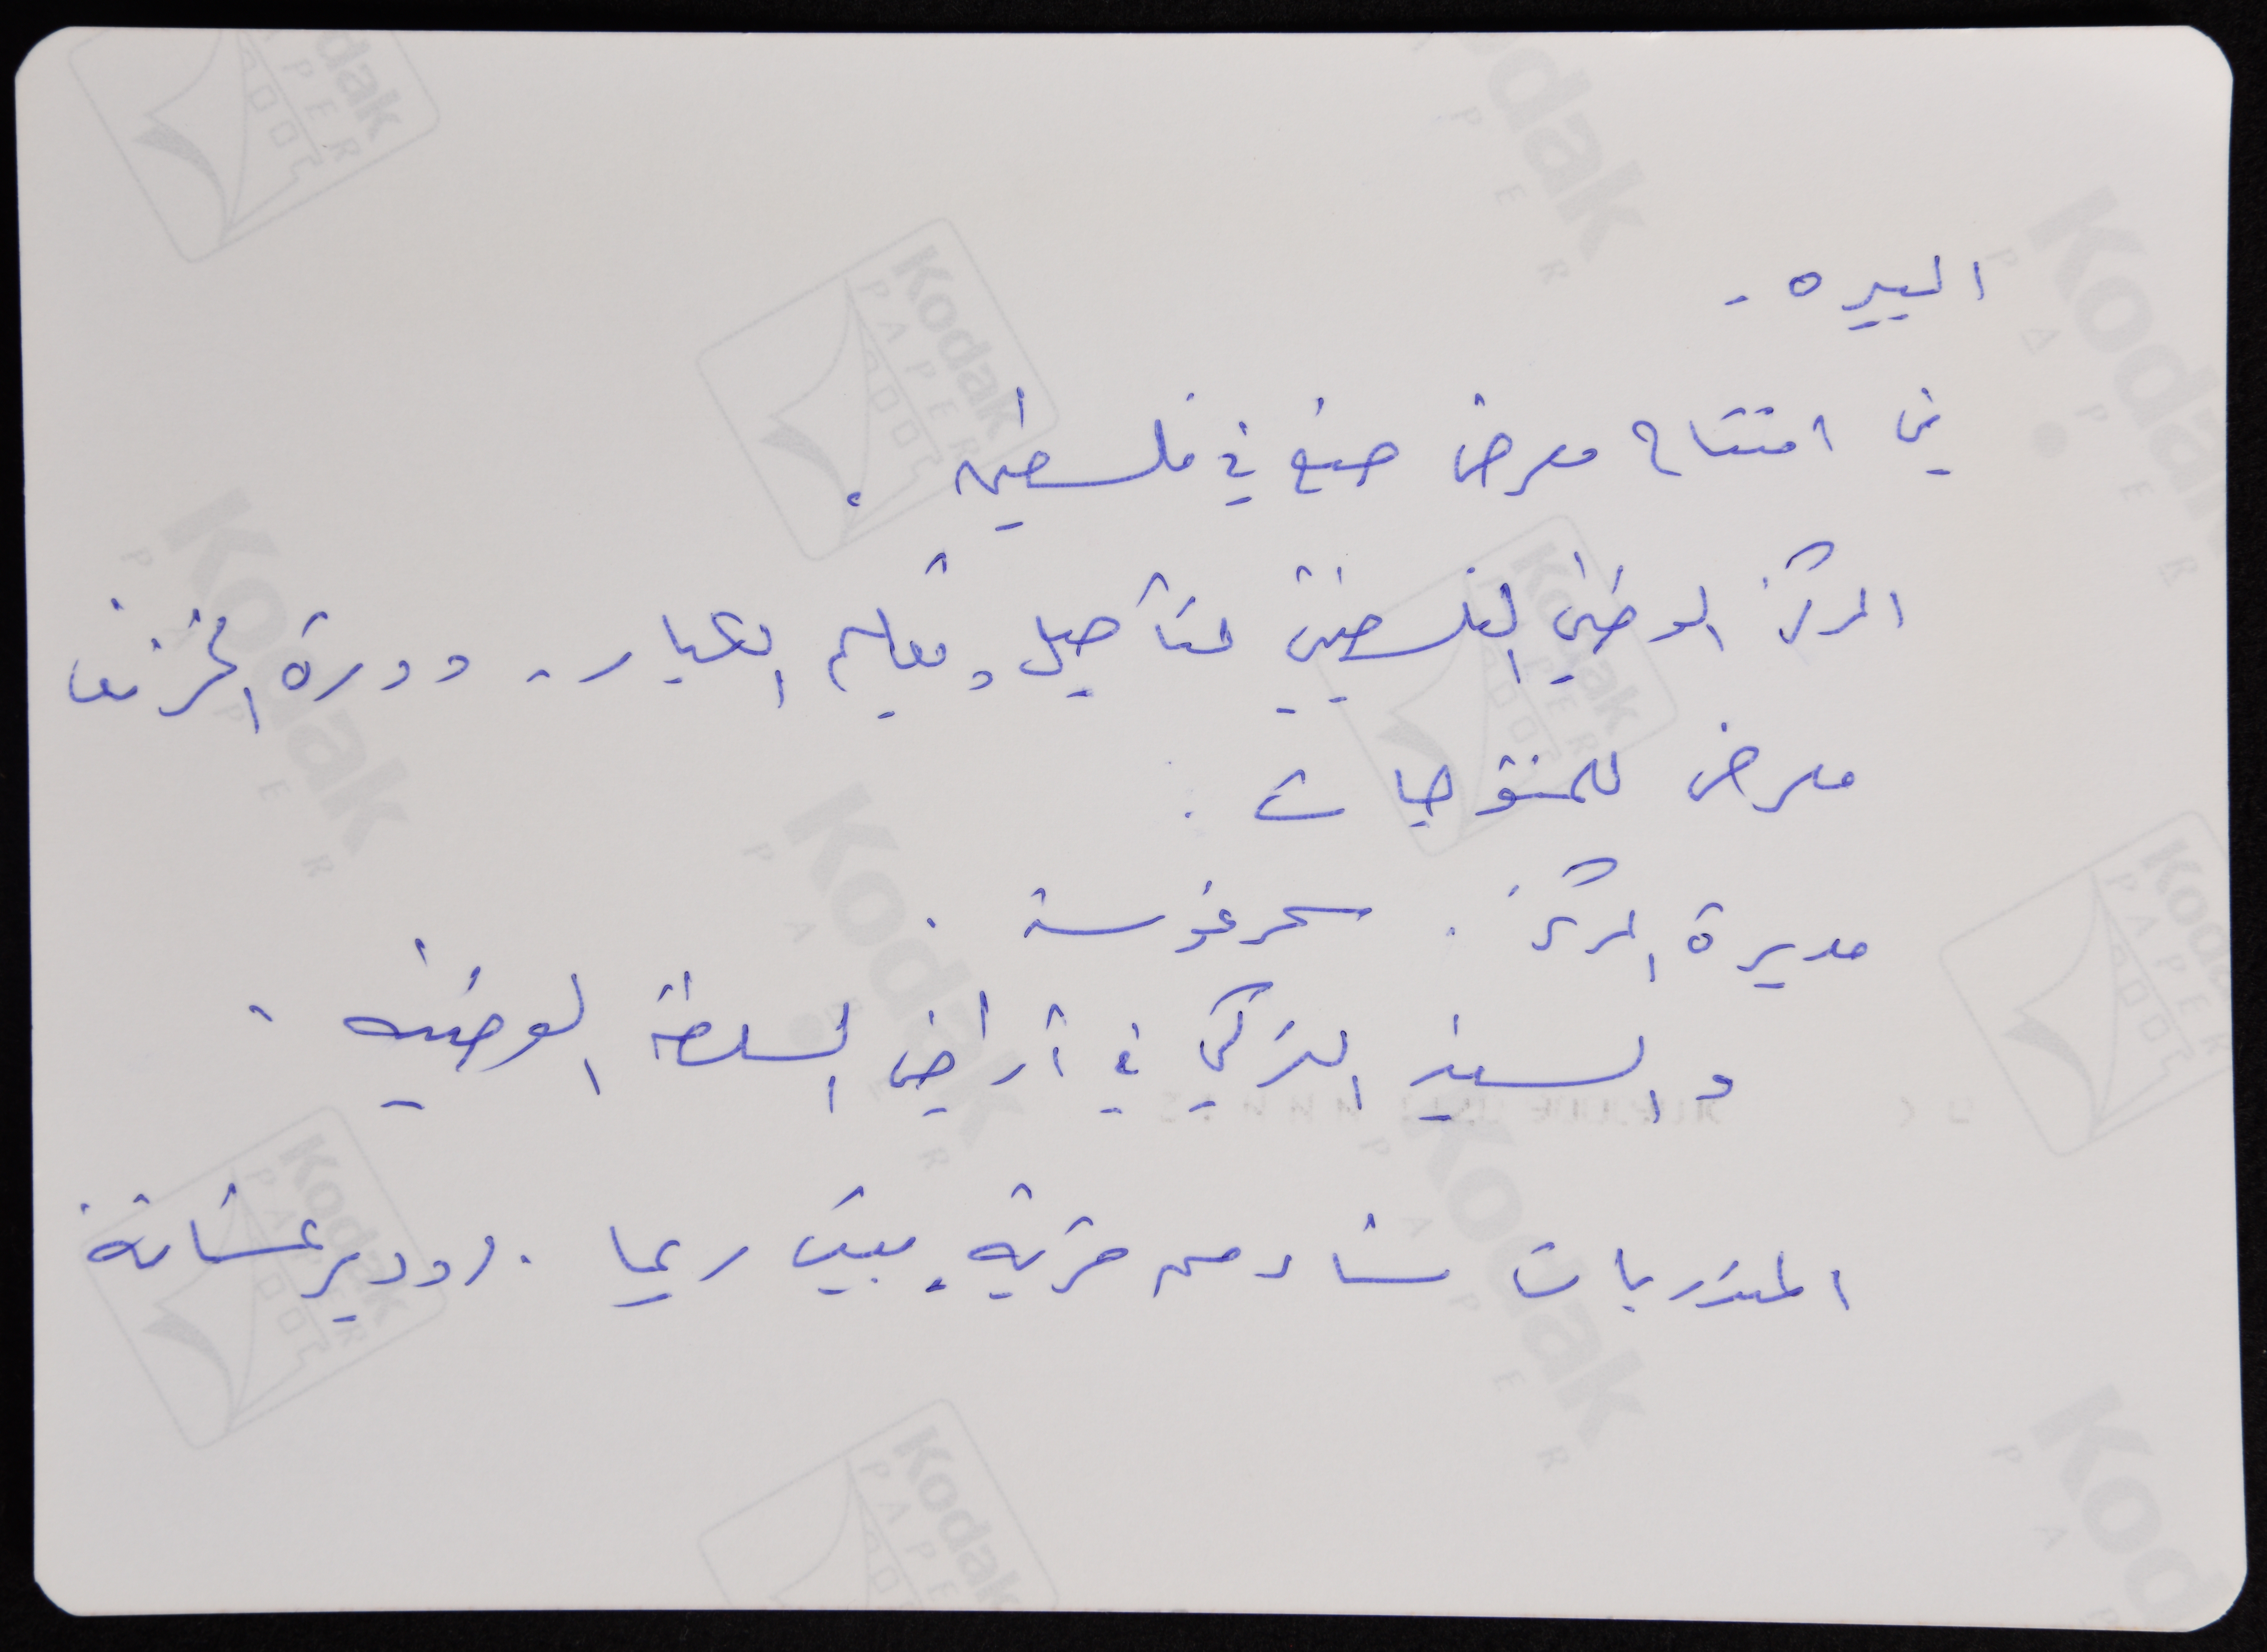 البيره -
في افتتاح معرض صنع في فلسطين .
المركز الوطني الفلسطيني لتأصيل وتعليم الكبار - دورة الخزف
معرض للمنتوجات .
مديرة المركز . سحر غوسة .
والسفير التركي في أراضي السلطة الوطنيه .
المتدربات نساء من قرية بيت ريما . ودير غسانة